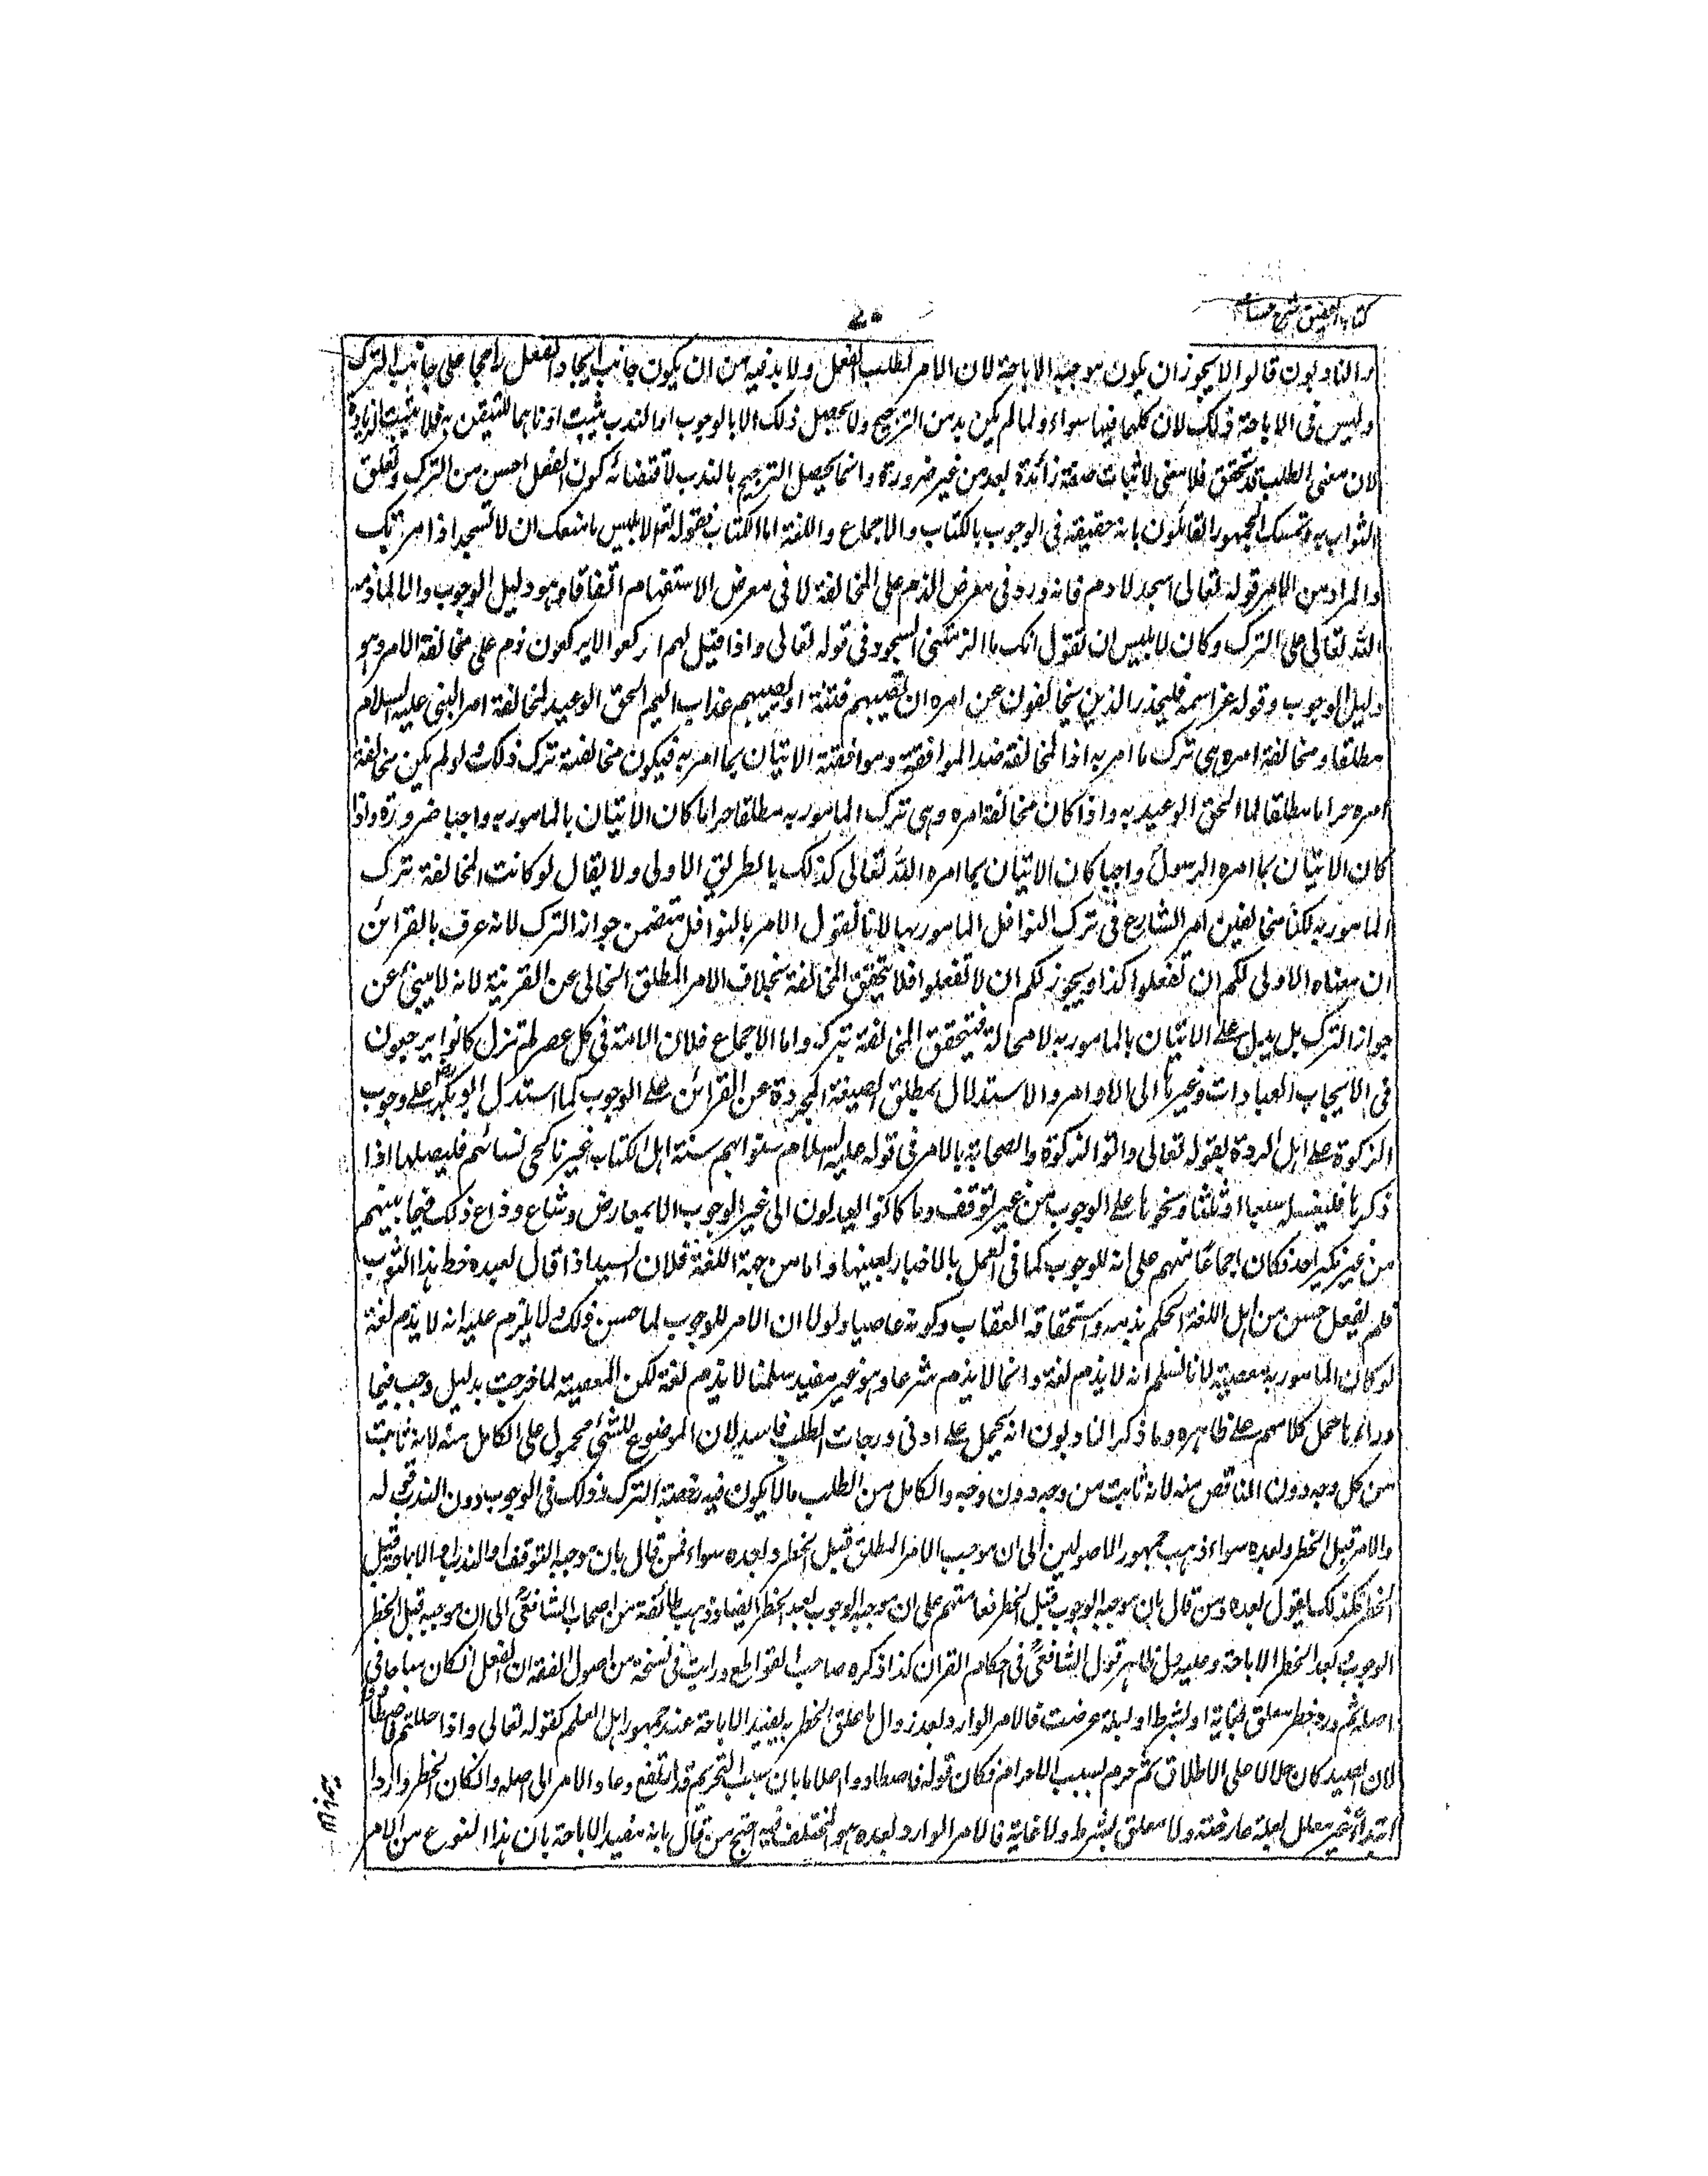 كتاب التحقيق شرح حسامى
٧٠
والنادبون قالوا لا يجوز ان يكون موجبه الاباحة لان الامر لطلب الفعل ولا بد فيه من ان يكون جانب ايجاد الفعل راجحا على جانب الترك
وليس فى الاباحة ذلك لان كلهما فيها سواء ولما لم يكن بد من الترجيح ولا يحصل ذلك الا بالوجوب او الندب يثبت ادناهما للتيقن به فلا يثبت الزيادة
لان معنى الطلب قد تحقق فلا معنى لاثبات صفة زائدة بعد من غير ضرورة وانما يحصل الترجيح بالندب لاقتضائه كون الفعل احسن من الترك وتعلق
الثواب به وتمسك الجمهور القائلون بانه حقيقة فى الوجوب بالكتاب والاجماع واللغة اما الكتاب فقوله تع لابليس ما منعك ان لا تسجد اذ امرتك
والمراد من الامر قوله تعالى اسجد لادم فانه ورد فى معرض الذم على المخالفة لا فى معرض الاستفهام اتفاقا وهو دليل الوجوب والا لما ذمه
الله تعالى على الترك وكان لابليس ان يقول انك ما الزمتنى السجود فى قوله تعالى واذا قيل لهم اركعوا لا يركعون ذم على مخالفة الامر وهو
دليل الوجوب وقوله عز اسمه فليحذر الذين يخالفون عن امره ان تصيبهم فتنة او يصيبهم عذاب اليم الحق الوعيد لمخالفة امر النبى عليه السلام
مطلقا ومخالفة امره هى ترك ما امر به اذ المخالفة ضد الموافقة وموافقته الاتيان بما امر به فيكون مخالفته ترك ذلك ولو لم يكن مخالفة
امره حراما مطلقا لما الحق الوعيد به واذا كان مخالفة امره وهى ترك المامور به مطلقا حراما كان الاتيان بالمامور به واجبا ضرورة واذا
كان الاتيان بما امره الرسول واجبا كان الاتيان بما امره الله تعالى كذلك بالطريق الاولى ولا يقال لو كانت المخالفة ترك
المامور به لكنا مخالفين امر الشارع فى ترك النوافل المامور بها لانا نقول الامر بالنوافل يتضمن جواز الترك لانه عرف بالقرائن
ان معناه الاولى لكم ان تفعلوا كذا ويجوز لكم ان لا تفعلوا فلا يتحقق المخالفة بخلاف الامر المطلق الخالى عن القرينة لانه لا ينبئ عن
جواز الترك بل يدل على الاتيان بالمامور به لا محالة فيتحقق المخالفة بتركه واما الاجماع فلان الامة فى كل عصر لم تزل كانوا يرجعون
فى الايجاب العبادات وغيرها الى الاوامر والاستدلال بمطلق الصيغة المجردة عن القرائن على الوجوب كما استدل ابوبكر على وجوب
الزكوة على اهل الردة بقوله تعالى واتوا الزكوة والصحابة بالامر فى قوله عليه السلام سنوا بهم سنة اهل الكتاب غير ناكحى نسائهم فليصلها اذا
ذكرها فليغسله سبعا او ثلثا ونحوها على الوجوب من غير توقف وما كانوا يعدلون الى غير الوجوب الا بمعارض وشاع وذاع ذلك فيما بينهم
من غير نكير احد فكان اجماعا منهم على انه للوجوب كما فى العمل بالاخبار بعينها واما من جهة اللغة فلان السيد اذا قال لعبده خط هذا الثوب
فلم يفعل حسن من اهل اللغة الحكم بذمه واستحقاقه العقاب وكونه عاصيا ولولا ان الامر للوجوب لما حسن ذلك ولا يلزم عليه انه لا يذم لغة
لو كان المامور به معصية لانا نسلم انه لا يذم لغة وانما لا يذم شرعا وهو غير مفيد سلمنا لا يذم لغة لكن المعصية لما خرجت بدليل وجب فيما
وراءها حمل كلامهم على ظاهره وما ذكر النادبون انه يحمل على ادنى درجات الطلب فاسد لان الموضوع للشئ محمول على الكامل منه لانه ثابت
من كل وجه دون الناقص منه لانه ثابت من وجه دون وجه والكامل من الطلب ما لا يكون فيه رخصة الترك وذلك فى الوجوب دون الندب قوله
والامر قبل الحظر وبعده سواء ذهب جمهور الاصوليين الى ان موجب الامر المطلق قبل الحظر وبعده سواء فمن قال بان موجبه التوقف او الندب او الاباحة قبل
الحظر فكذلك يقول بعده ومن قال بان موجبه الوجوب قبل الحظر فعامتهم على ان موجبه الوجوب بعد الحظر ايضا وذهب طائفة من اصحاب الشافعى الى ان موجبه قبل الحظر
الوجوب وبعد الحظر الاباحة وعليه دل ظاهر قول الشافعى فى احكام القران كذا ذكره صاحب القواطع ورايت فى نسخة من اصول الفقه ان الفعل ان كان مباحا فى
اصله ثم ورد حظر معلق بغاية او بشرط او لعلة عرضت فالامر الوارد بعد زوال ما علق الحظر به يفيد الاباحة عند جمهور اهل العلم كقوله تعالى واذا حللتم فاصطادوا
لان الصيد كان حلالا على الاطلاق ثم حرم لسبب الاحرام فكان قوله فاصطادوا اعلاما بان سبب التحريم قد ارتفع وعاد الامر الى اصله وان كان الحظر واردا
ابتداء غير معلل لعلة عارضة ولا معلق بشرط ولا غاية فالامر الوارد بعده هو المختلف فيه احتج من قال بانه مفيد الاباحة بان هذا النوع من الامر